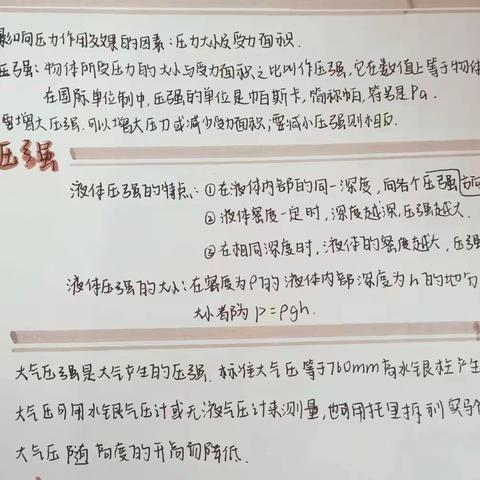 影响压力作用效果的因素：压力大小及受力面积.
压强：物体所受压力的大小与受力面积之比叫作压强，它在数值上等于物体
在国际单位制中，压强的单位是帕斯卡，简称帕，符号是Pa.
要增大压强，可以增大压力或减少受力面积；要减小压强则相反.
压强
液体压强的特点：①在液体内部的同一深度，向各个压强
②液体密度一定时，深度越深，压强越大.
③在相同深度时，液体的密度越大，压强
液体压强的大小：在密度为ρ的液体内部深度为h的地方
大小都为 p=ρgh.
大气压强是大气产生的压强.标准大气压等于760mm高水银柱产生
大气压可用水银气压计或无液气压计来测量，也可用托里拆利实验
大气压随高度的升高而降低.